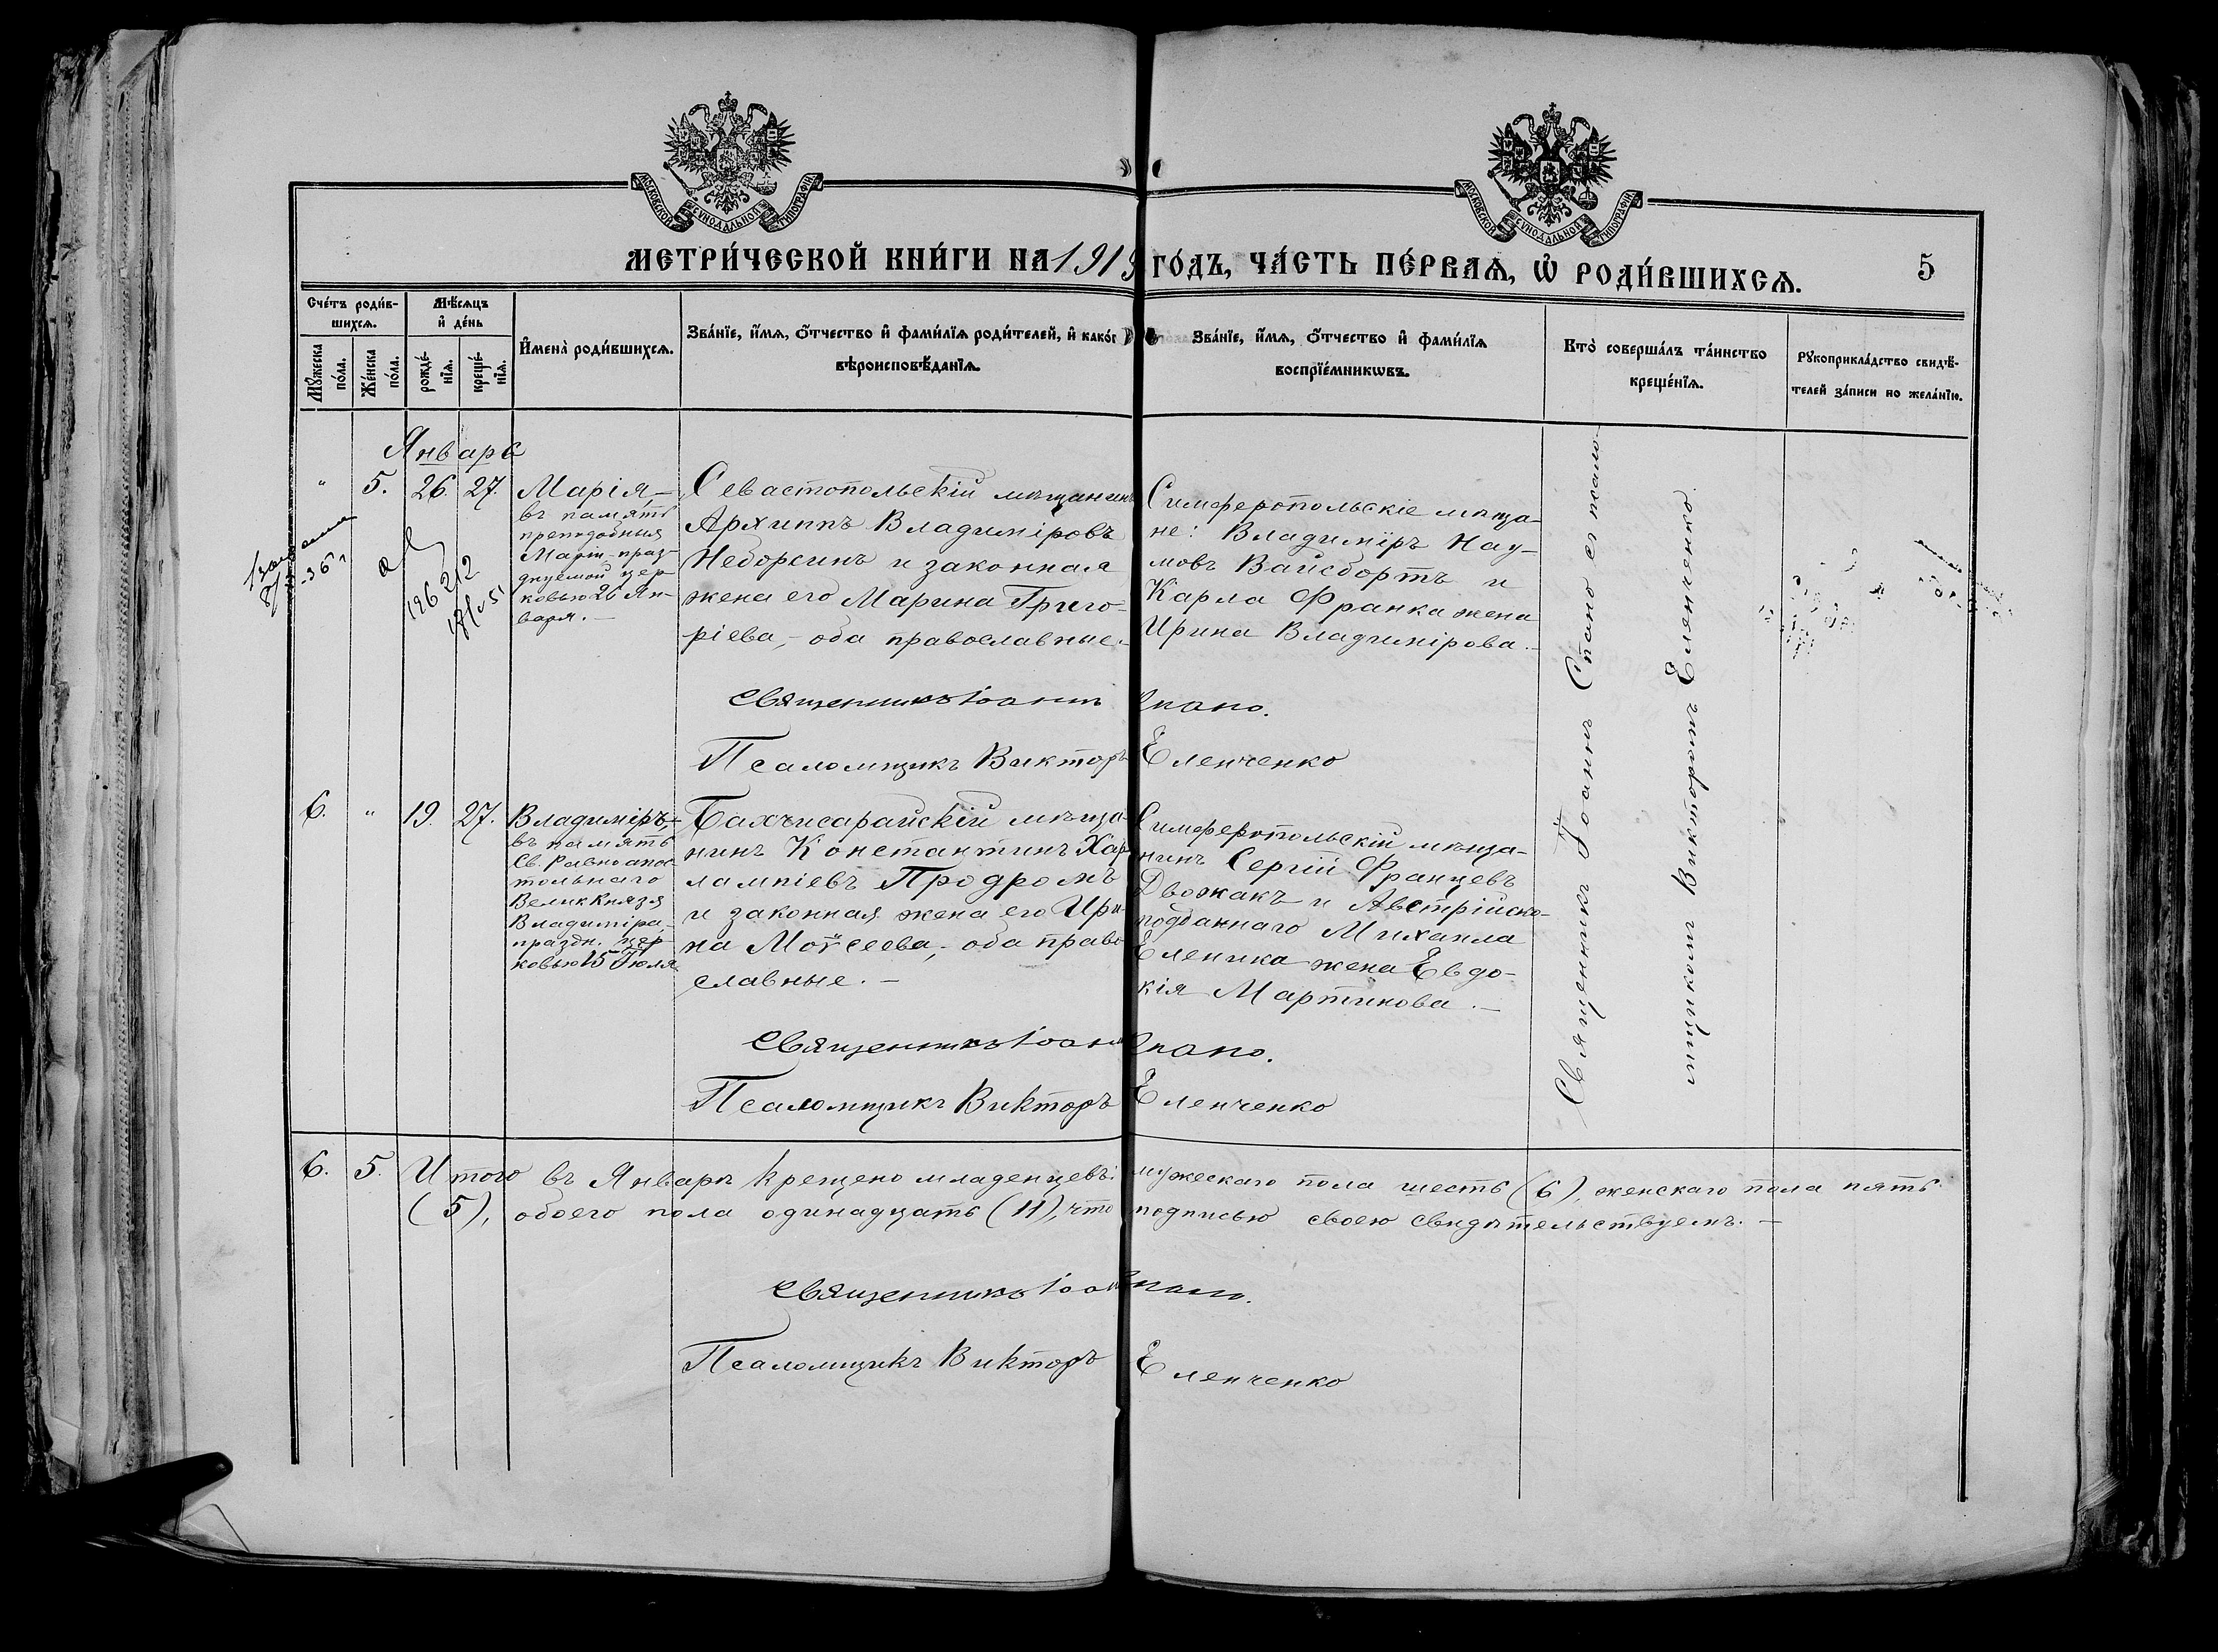 МОСКОВСКОЙ СѴНОДАЛЬНОЙ ТИПОГРАФІИ
МОСКОВСКОЙ СѴНОДАЛЬНОЙ ТИПОГРАФІИ
МЕТРИ́ЧЕСКОЙ КНИ́ГИ НА 1913 ГО́ДЪ, ЧА́СТЬ ПЕ́РВАѦ, Ѡ҆ РОДИ́ВШИХСѦ. 5
Сче́тъ роди́в-
шихсѧ.
Мꙋ́жеска по́ла.
Же́нска по́ла.
Мѣ́сѧцъ
и҆ де́нь
рожде́-
нїѧ.
креще́-
нїѧ.
И҆мена̀ роди́вшихсѧ.
Зва́нїе, и҆́мѧ, ѻ҆́тчество и҆ фами́лїѧ роди́телей, и҆ како́г
вѣроисповѣ́данїѧ.
Зва́нїе, и҆́мѧ, ѻ҆́тчество и҆ фами́лїѧ
воспрїе́мникѡвъ.
Кто̀ соверша́лъ та́инство
креще́нїѧ.
Рꙋкоприкла́дство свидѣ́-
телей за́писи по жела́нїю.
Января
" 5. 26. 27.
Марія,—
въ память
преподобныя
Маріи праз-
днуемой цер-
ковью 26 Ян-
варя.—
Севастопольскій мѣщанинъ
Архиппъ Владиміровъ
Неборсинъ и законная
жена его Марина Григо-
ріева,— оба православные.—
Симферопольскіе мѣща-
не: Владиміръ Нау-
мовъ Вайсбортъ и
Карла Франка жена
Ирина Владимірова.—
Священникъ Іоаннъ Спано.
Псаломщикъ Викторъ Еленченко
Священникъ Іоаннъ Спано съ псало-
мщикомъ Викторомъ Еленченко.
6. " 19. 27.
Владиміръ,—
въ память
Св. Равноапос-
тольнаго
Велик Князя
Владиміра,—
праздн. цер-
ковью 15 Іюля
Бахчисарайскій мѣща-
нинъ Константинъ Хар-
лампіевъ Продромъ
и законная жена его Ири-
на Моѵсеева,— оба право-
славные.—
Симферопольскій мѣща-
нинъ Сергій Францевъ
Двожакъ и Австрійско-
подданнаго Михаила
Еленика жена Евдо-
кія Мартинова.—
Священникъ Іоаннъ Спано.
Псаломщикъ Викторъ Еленченко
6. 5. Итого въ Январѣ крещено младенцевъ: мужескаго пола шесть (6), женскаго пола пять
(5), обоего пола одинадцать (11), что подписью своею свидѣтельствуемъ.—
Священникъ Іоаннъ Спано.
Псаломщикъ Викторъ Еленченко